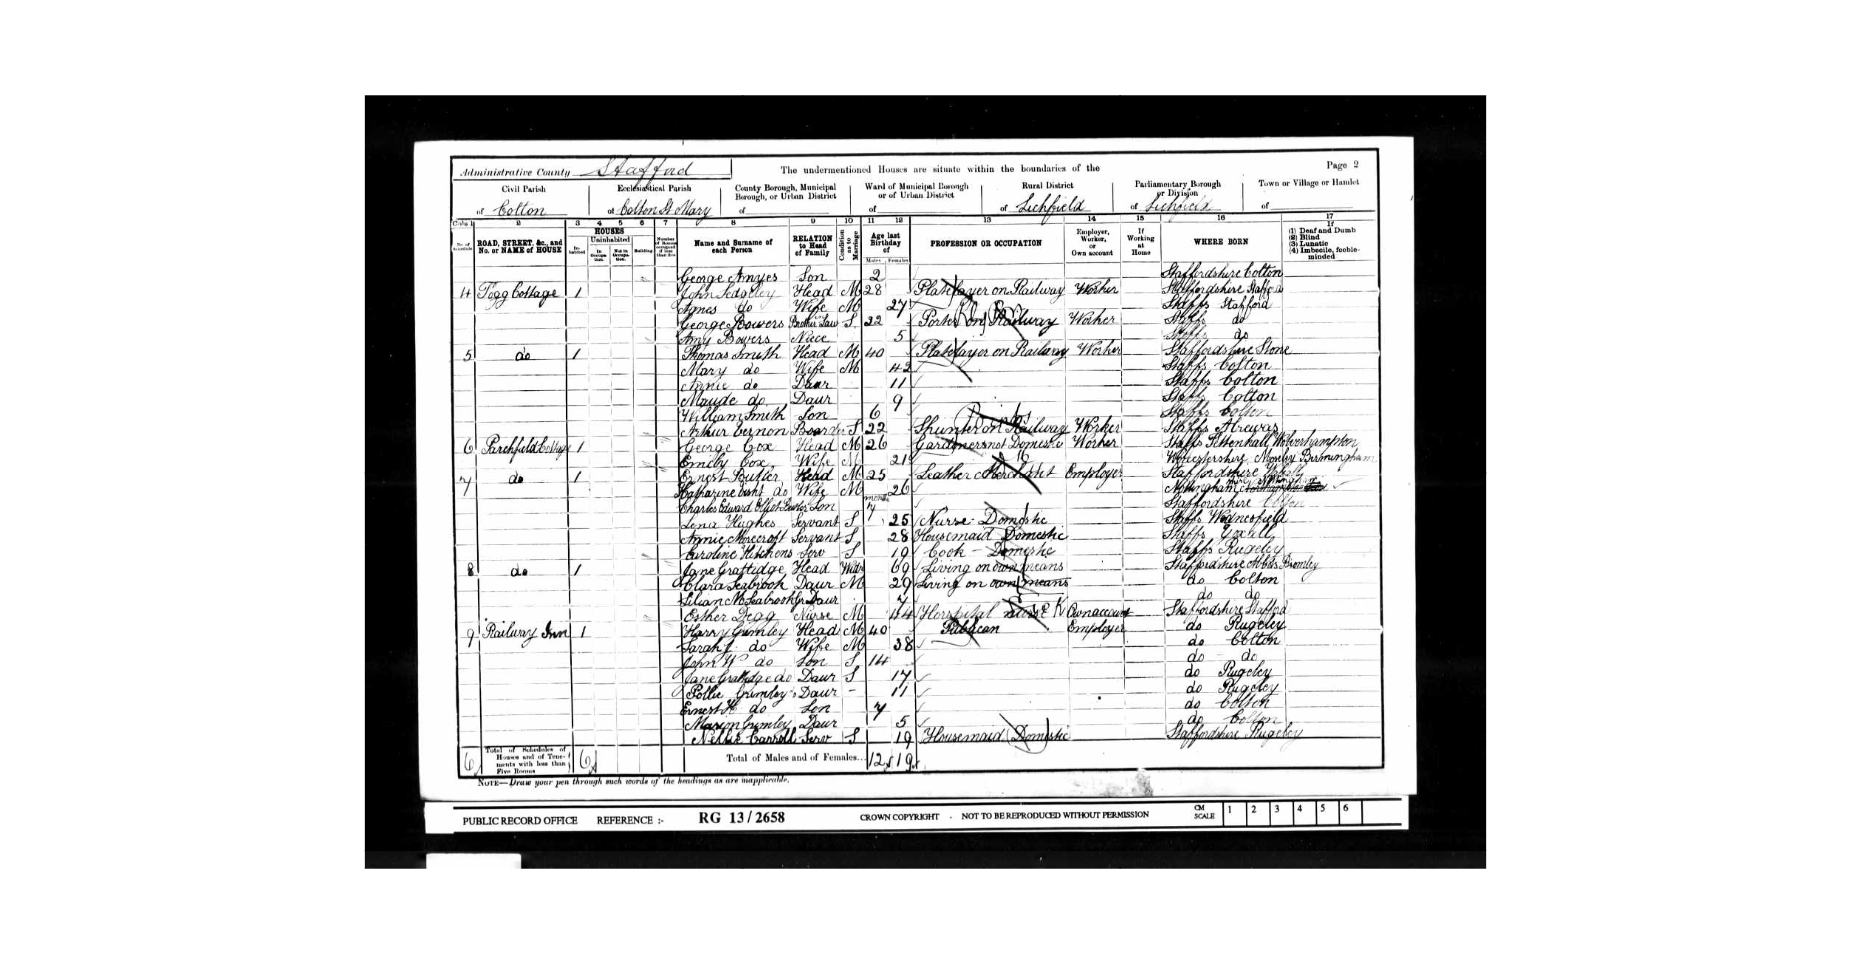 Administrative County Stafford The undermentioned Houses are situate within the boundaries of the Page 2
Civil Parish Ecclesiastical Parish County Borough, Municipal Borough, or Urban District Ward of Municipal Borough or of Urban District Rural District Parliamentary Borough or Division Town or Village or Hamlet
of Colton of Colton St Mary of of of Lichfield of Lichfield of
1 2 3 4 5 6 7 8 9 10 11 12 13 14 15 16 17
No. of Schedule ROAD, STREET, &c., and No. or NAME of HOUSE HOUSES In-habited Uninhabited In Occupation. Not in Occupation. Building Name and Surname of each Person RELATION to Head of Family Condition as to Marriage Age last Birthday of Males Females PROFESSION OR OCCUPATION Employer, Worker, or Own account If Working at Home WHERE BORN If (1) Deaf and Dumb (2) Blind (3) Lunatic (4) Imbecile, feeble-minded
George Amyes Son 2 Staffordshire Colton
4 Cottage 1 John Sedgeley Head M 28 Platelayer on Railway Worker Staffordshire Stafford
Agnes do Wife M 27 Staffs Stafford
George Bowers S 22 Porter Railway Worker Staffs do
Amy Bowers Niece 5 Staffs do
5 do 1 Thomas Smith Head M 40 Platelayer on Railway Worker Staffordshire Stone
Mary do Wife M 42 Staffs Colton
Annie do Daur 11 Staffs Colton
Maude do Daur 9 Staffs Colton
William Smith Son 6 Staffs Colton
Arthur Vernon Boarder S 22 Shunter on Railway Worker Staffs Alrewas
6 1 George Cox Head M 26 Gardiner not Domestic Worker Staffs Tettenhall Wolverhampton
Emily Cox Wife M 21 Worcestershire Moseley Birmingham
7 do 1 Ernest Butler Head M 25 Leather Merchant Employer Staffordshire
Katharine do Wife M 26 Nottingham
Charles Edward Son 7 months Staffordshire Colton
Lena Hughes Servant S 25 Nurse - Domestic Staffs Wednesfield
Annie Morecroft Servant S 28 Housemaid Domestic Staffs
Caroline Hitchens Serv S 19 Cook - Domestic Staffs Rugeley
8 do 1 Jane Grattidge Head Wid 69 Living on own means Staffordshire Abbots Bromley
Clara Seabrook Daur M 29 Living on own means do Colton
Lilian M Seabrook Gr Daur 7 do do
Esther Degg Nurse M 44 Horspital nurse Own account Staffordshire Stafford
9 Railway Inn 1 Harry Grimley Head M 40 Publican Employer do Rugeley
Sarah J do Wife M 38 do Colton
John W do Son S 14 do do
Jane Grattidge do Daur S 17 do Rugeley
Pollie Grimley Daur - 11 do Rugeley
Ernest H do Son 7 do Colton
Marion Grimley Daur 5 do Colton
Nellie Carroll Serv S 19 Housemaid Domestic Staffordshire Rugeley
6 Total of Schedules of Houses and of Tenements with less than Five Rooms 6 Total of Males and of Females... 12 19
NOTE—Draw your pen through such words of the headings as are inapplicable.
PUBLIC RECORD OFFICE REFERENCE :- RG 13/2658 CROWN COPYRIGHT - NOT TO BE REPRODUCED WITHOUT PERMISSION CM SCALE 1 2 3 4 5 6